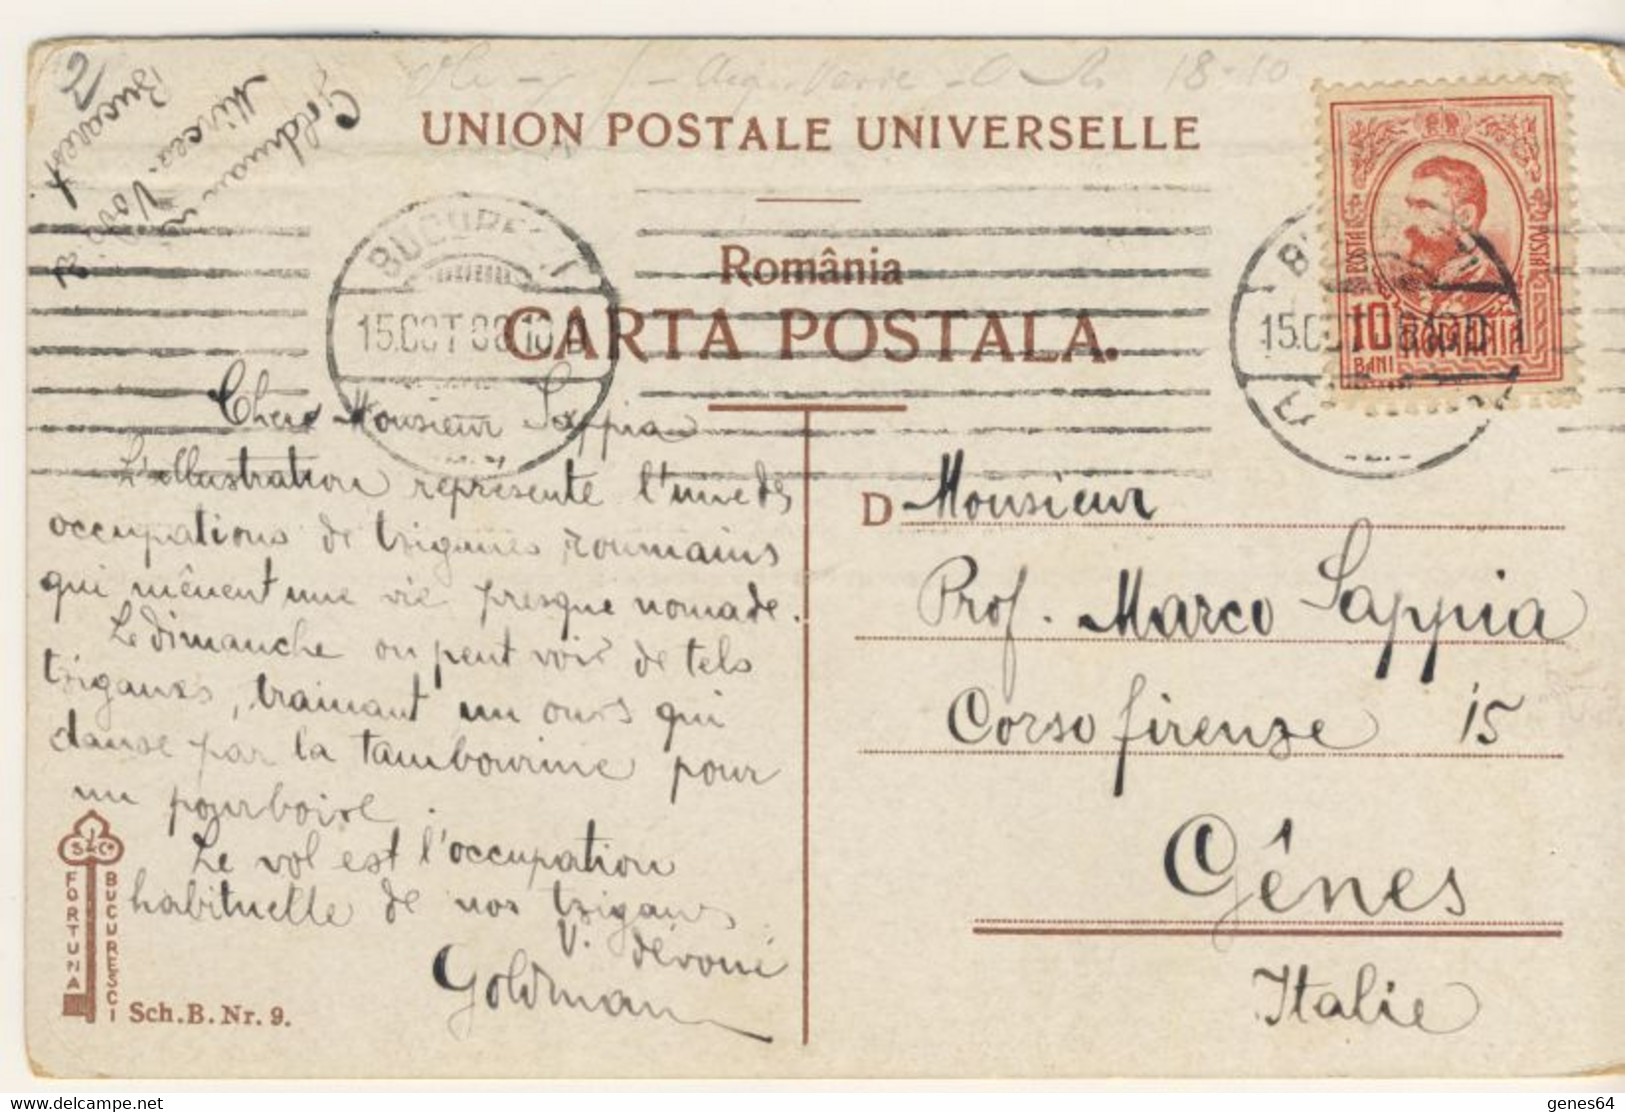 2
Goldman
Mircea Vodă
Bucarest
18-10
UNION POSTALE UNIVERSELLE
România
CARTA POSTALA.
BUCUREȘTI
15.OCT 08.10
POSTA
POSTA
10
BANI
ROMANIA
Chere Monsieur Sappia
L'illustration represente l'une des
occupations de tziganes roumains
qui mênent une vie presque nomade.
Le dimanche on peut voir de tels
tziganes, trainant un ours qui
danse par la tambourine pour
un pourboire.
Le vol est l'occupation
habituelle de nos tziganes
V. dévoué
Goldman
D Monsieur
Prof. Marco Sappia
Corso firenze 15
Gênes
Italie
S. & Co
FORTUNA
BUCURESCI
Sch. B. Nr. 9.
delcampe.net
genes64